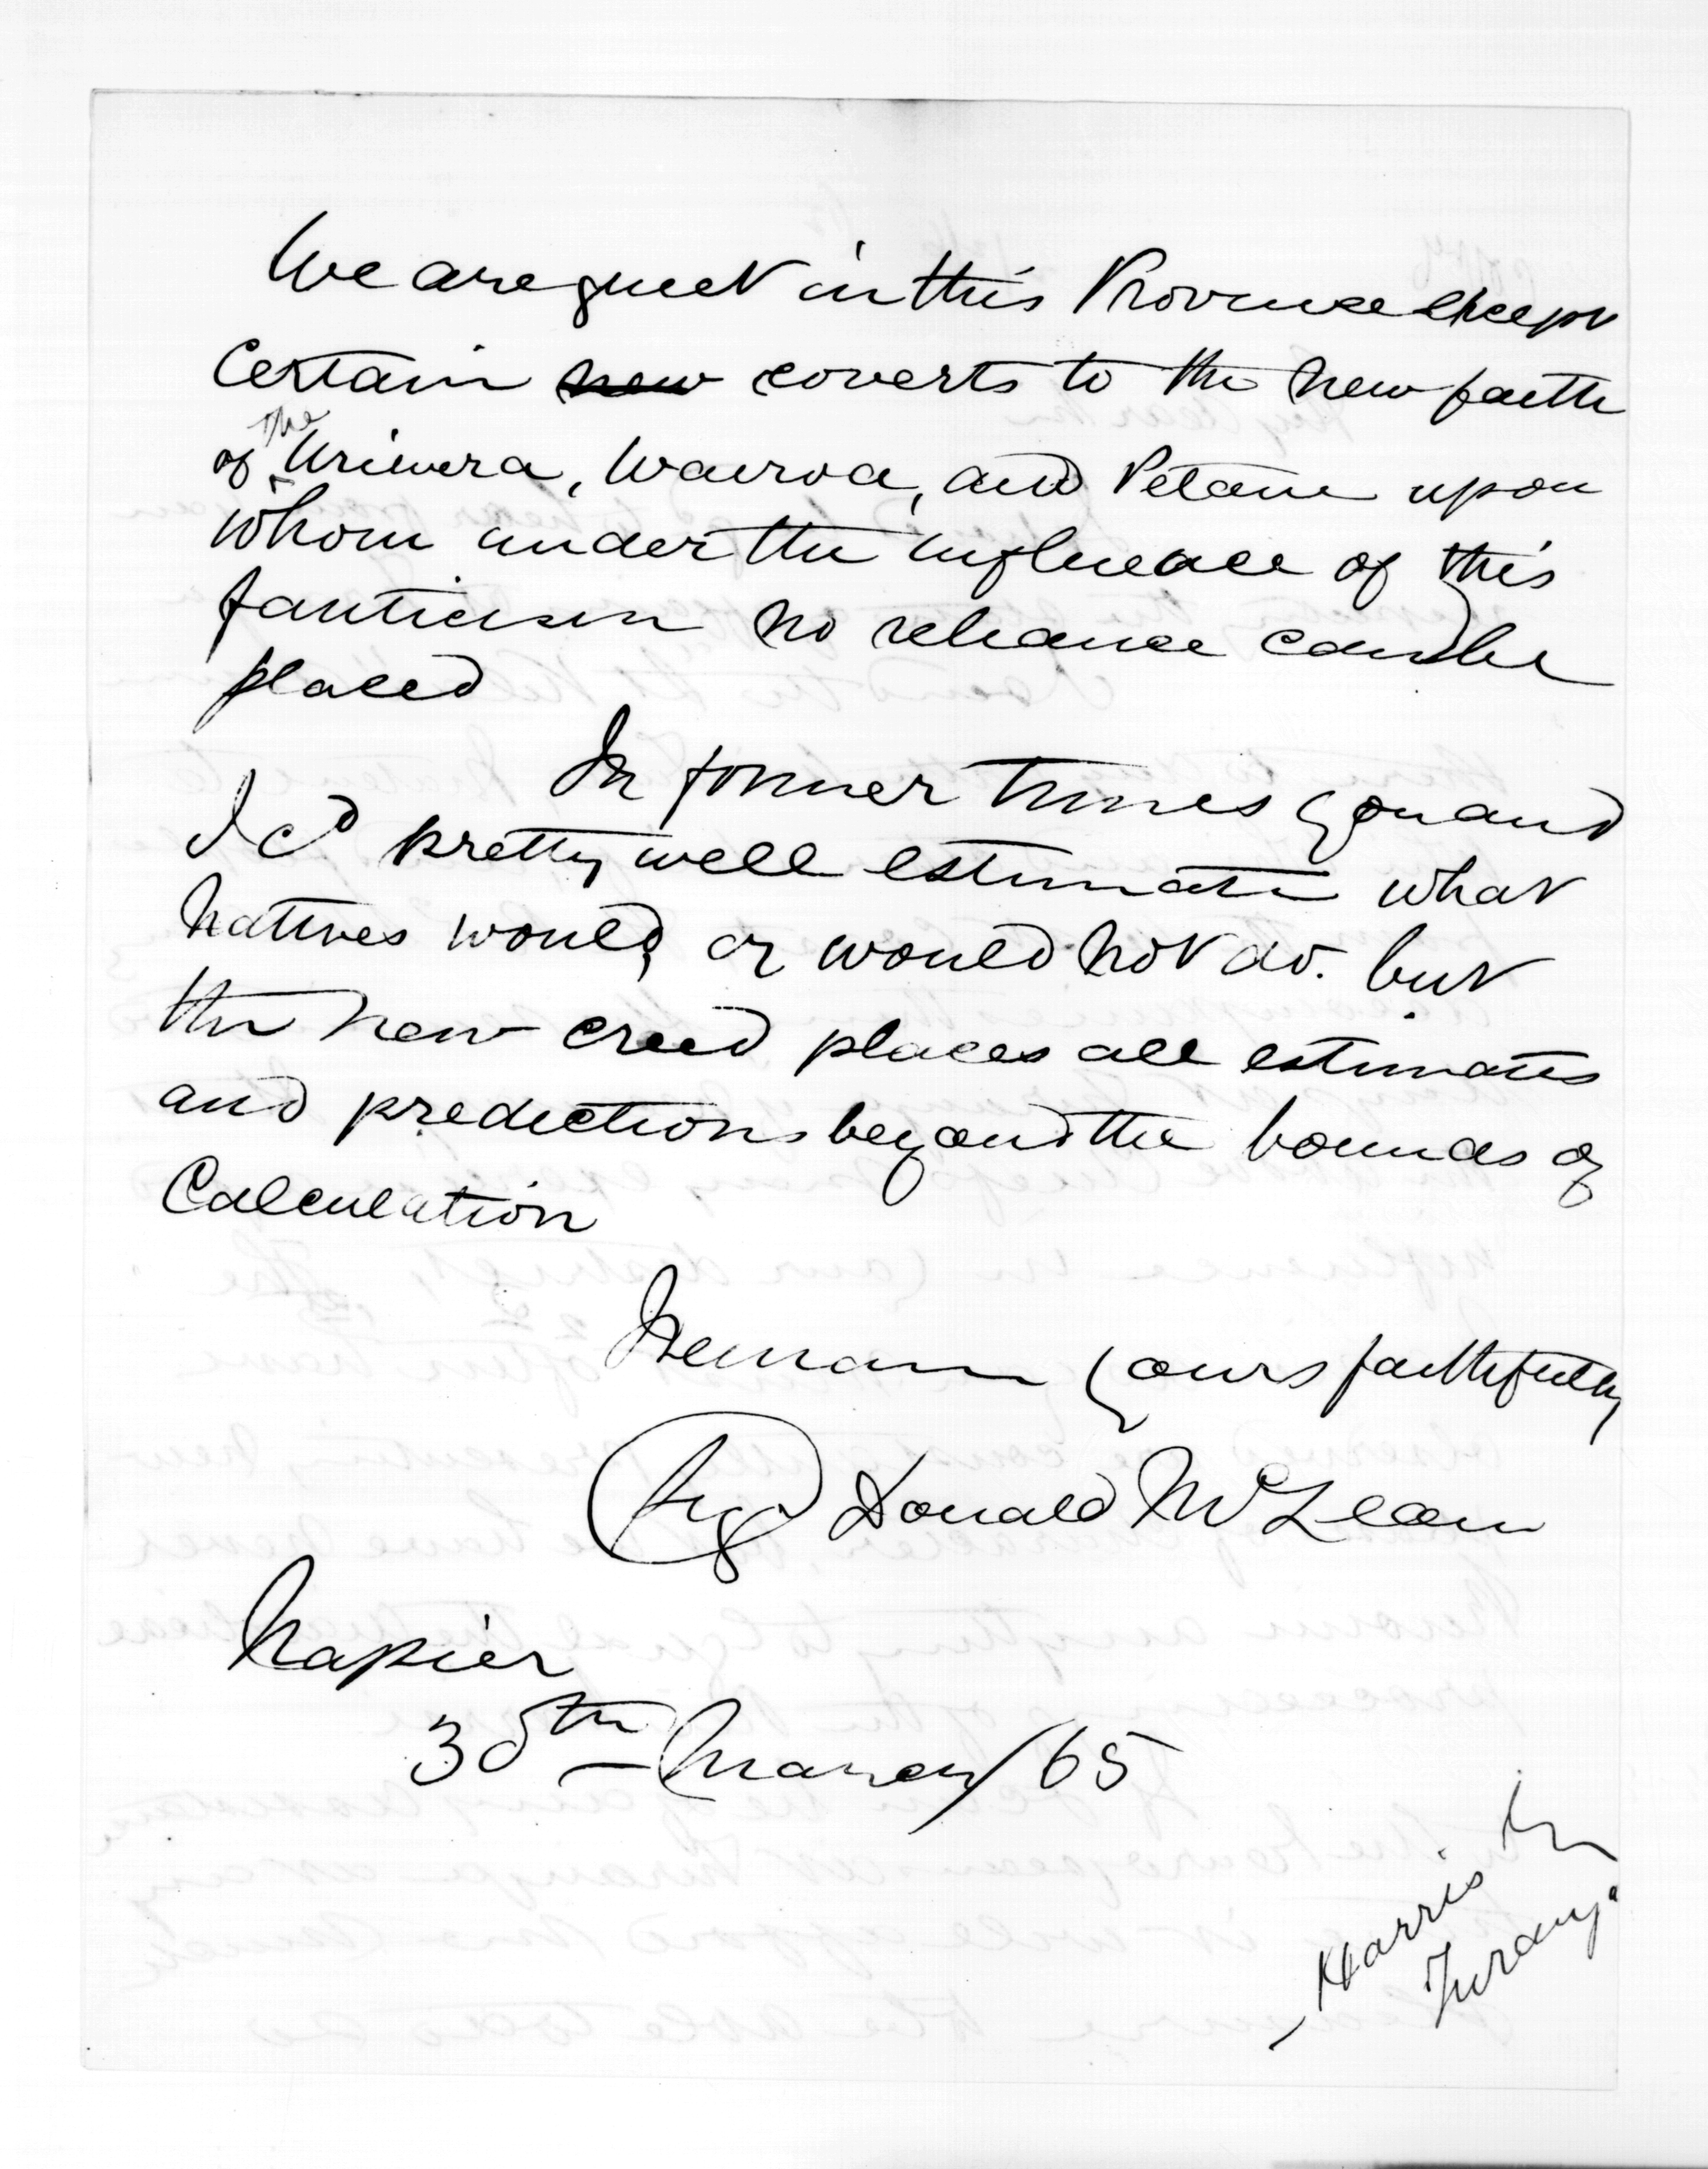 We are quiet in this Province except
Certain new coverts to the new faith
of the Uriwera, Wairoa, and Petane upon
whom under the influence of this
fanticism no reliance can be
placed
In former times you and
I cd pretty well estimate what
Natives would, or would not do. but
the new creed places all estimates
and predictions beyond the bounds of
Calculation
I remain yours faithfully
(Sigd) Donald McLean
Napier
30th March/65
Harris
Turanga